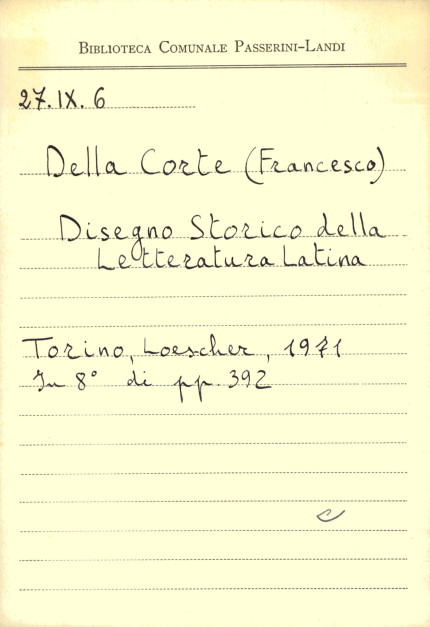 BIBLIOTECA COMUNALE PASSERINI-LANDI
27.IX.6
Della Corte (Francesco)
Disegno Storico della
Letteratura Latina
Torino, Loescher, 1971
In 8° di pp. 392